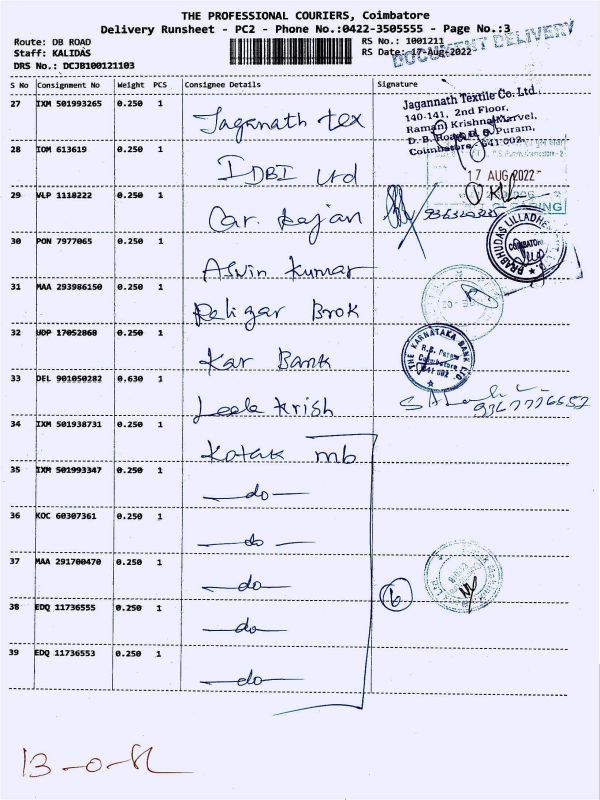 THE PROFESSIONAL COURIERS, Coimbatore
Delivery Runsheet - PC2 - Phone No.:0422-3505555 - Page No.:3
Route: DB ROAD
RS No.: 1001211
Staff: KALIDAS
RS Date: 17-Aug-2022
DOCUMENT DELIVERY
DRS No.: DCJB100121103
S No Consignment No Weight PCS Consignee Details Signature
27 IXM 501993265 0.250 1 Jagannath tex
Jagannath Textile Co. Ltd.,
140-141, 2nd Floor,
Raman Krishna Marvel,
D. B. Road, R. S. Puram,
Coimbatore - 641 002.
28 IOM 613619 0.250 1 IDBI Ltd
17 AUG 2022
29 VLP 1118222 0.250 1 Car. Rajan
30 PON 7977065 0.250 1 Aswin Kumar
PRABHUDAS LILLADHER
31 MAA 293986150 0.250 1 Religar Brok
32 UDP 17052860 0.250 1 Kar Bank
THE KARNATAKA BANK LTD.
R.S. Puram
Coimbatore
641 002
33 DEL 901050282 0.630 1 Leela Krish
34 IXM 501938731 0.250 1 Kotak mb
35 IXM 501993347 0.250 1 —do—
36 KOC 60307361 0.250 1 —do—
37 MAA 291700470 0.250 1 —do—
6
38 EDQ 11736555 0.250 1 —do—
39 EDQ 11736553 0.250 1 —do—